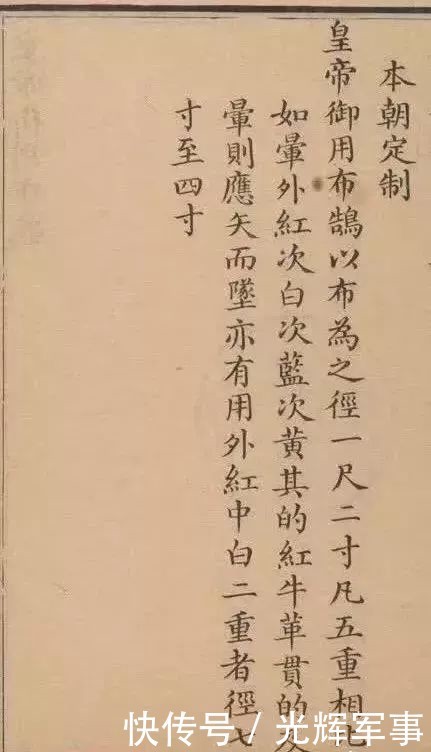 本朝定制
皇帝御用布鵠以布為之徑一尺二寸凡五重相
如暈外紅次白次藍次黄其的紅牛革貫的
暈則應矢而墜亦有用外紅中白二重者徑七
寸至四寸
快传号／光辉军事